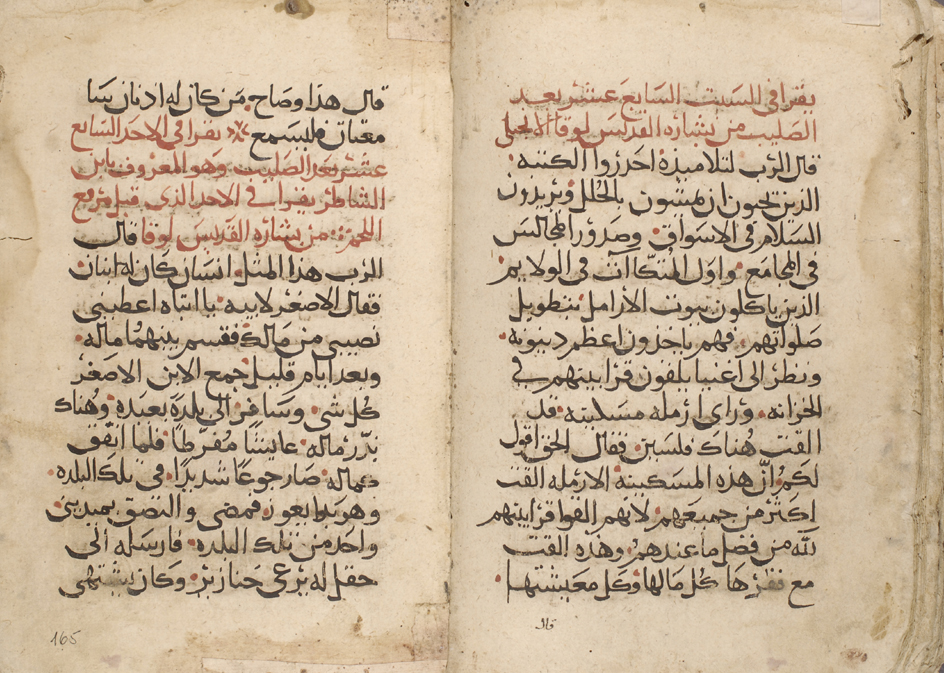 يقرا في السبت السابع عشر بعد
الصليب من بشارة القديس لوقا الانجيلي
قال الرب لتلاميذه احذروا الكتبه
الذين يحبون ان يمشون بالحلل ويريدون
السلام في الاسواق وصدور المجالس
في المجامع واول المتكات في الولايم
الذين ياكلون بيوت الارامل بتطويل
صلواتهم فهم ياخذون اعظم دينونه
ونظر الى اغنيا يلقون قرابينهم في
الخزانه وراى ارمله مسكينه قد
القت هناك فلسين فقال الحق اقول
لكم ان هذه المسكينه الارمله القت
اكثر من جميعهم لانهم القوا قرابينهم
لله من فضل ما عندهم وهذه القت
مع فقرها كل مالها وكل معيشتها
قال
قال هذا وصاح من كان له اذنان
فليسمع يقرا في الاحد السابع
عشر بعد الصليب وهو المعروف بابن
الشاطر يقرا في الاحد الذي قبل مرفع
من بشارة القديس لوقا قال
الرب هذا المثل انسان كان له ابنان
فقال الاصغر لابيه يا ابتاه اعطيني
نصيبي من مالك فقسم بينهما ماله
وبعد ايام قليل جمع الابن الاصغر
كل شي وسافر الى بلدة بعيده وهناك
بذر ماله عايشًا مفرطًا فلما انفق
ماله صار جوعًا شديدًا في تلك البلده
وهو فمضى والتصق
واحد من تلك البلده فارسله الى
حقل له يرعى خنازير وكان يشتهي
165